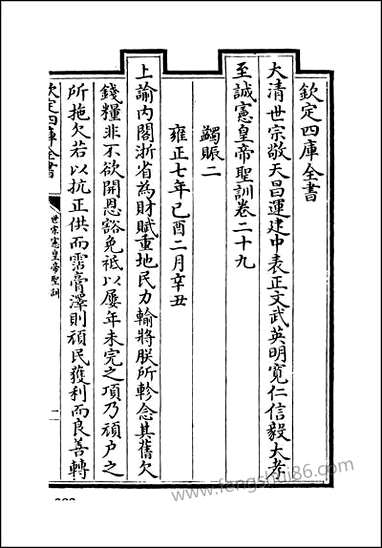 欽定四庫全書
大清世宗敬天昌運建中表正文武英明寬仁信毅大孝
至誠憲皇帝聖訓卷二十九
蠲賑二
雍正七年己酉二月辛丑
上諭內閣浙省為財賦重地民力輸將朕所軫念其舊欠
錢糧非不欲開恩豁免祗以屢年未完之項乃頑戶之
所拖欠若以抗正供而霑膏澤則頑民獲利而良善轉
欽定四庫全書
世宗憲皇帝聖訓
一
www.fengshui86.com